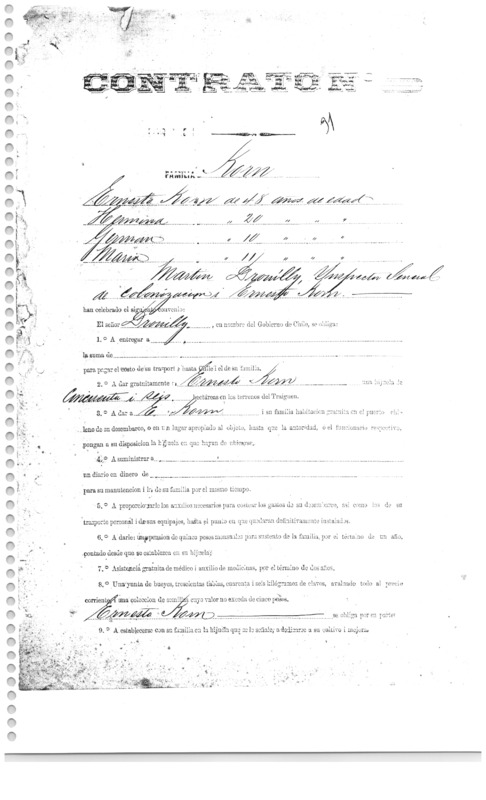 CONTRATO N°
91
FAMILIA Korn
Ernesto Korn de 48 años de edad
Hermina " 20 " " "
German " 10 " " "
Maria " 11 " " "
Martin Drouilly, Ynspector Jeneral
de Colonizacion i Ernesto Korn.
han celebrado el siguiente convenio:
El señor Drouilly, en nombre del Gobierno de Chile, se obliga:
1.° A entregar a
la suma de
para pagar el costo de su trasporte hasta Chile i el de su familia.
2.° A dar gratuitamente a Ernesto Korn una hijuela de
Cincuenta i seis hectáreas en los terrenos del Traiguen.
3.° A dar a E. Korn i su familia habitacion gratuita en el puerto chi-
leno de su desembarco, o en un lugar apropiado al objeto, hasta que la autoridad, o el funcionario respectivo,
pongan a su disposicion la hijuela en que hayan de ubicarse.
4.° A suministrar a
un diario en dinero de
para su manutencion i la de su familia por el mismo tiempo.
5.° A proporcionarle los auxilios necesarios para costear los gastos de su desembarco, así como los de su
trasporte personal i de sus equipajes, hasta el punto en que quedaran definitivamente instalados.
6.° A darles una pension de quince pesos mensuales para sustento de la familia, por el término de un año,
contado desde que se establezca en su hijuela;
7.° Asistencia gratuita de médico i auxilio de medicinas, por el término de dos años.
8.° Una yunta de bueyes, trescientas tablas, cuarenta i seis kilógramos de clavos, avaluado todo al precio
corriente i una coleccion de semillas cuyo valor no exceda de cinco pesos.
Ernesto Korn se obliga por su parte:
9.° A establecerse con su familia en la hijuela que se le señale, a dedicarse a su cultivo i mejora